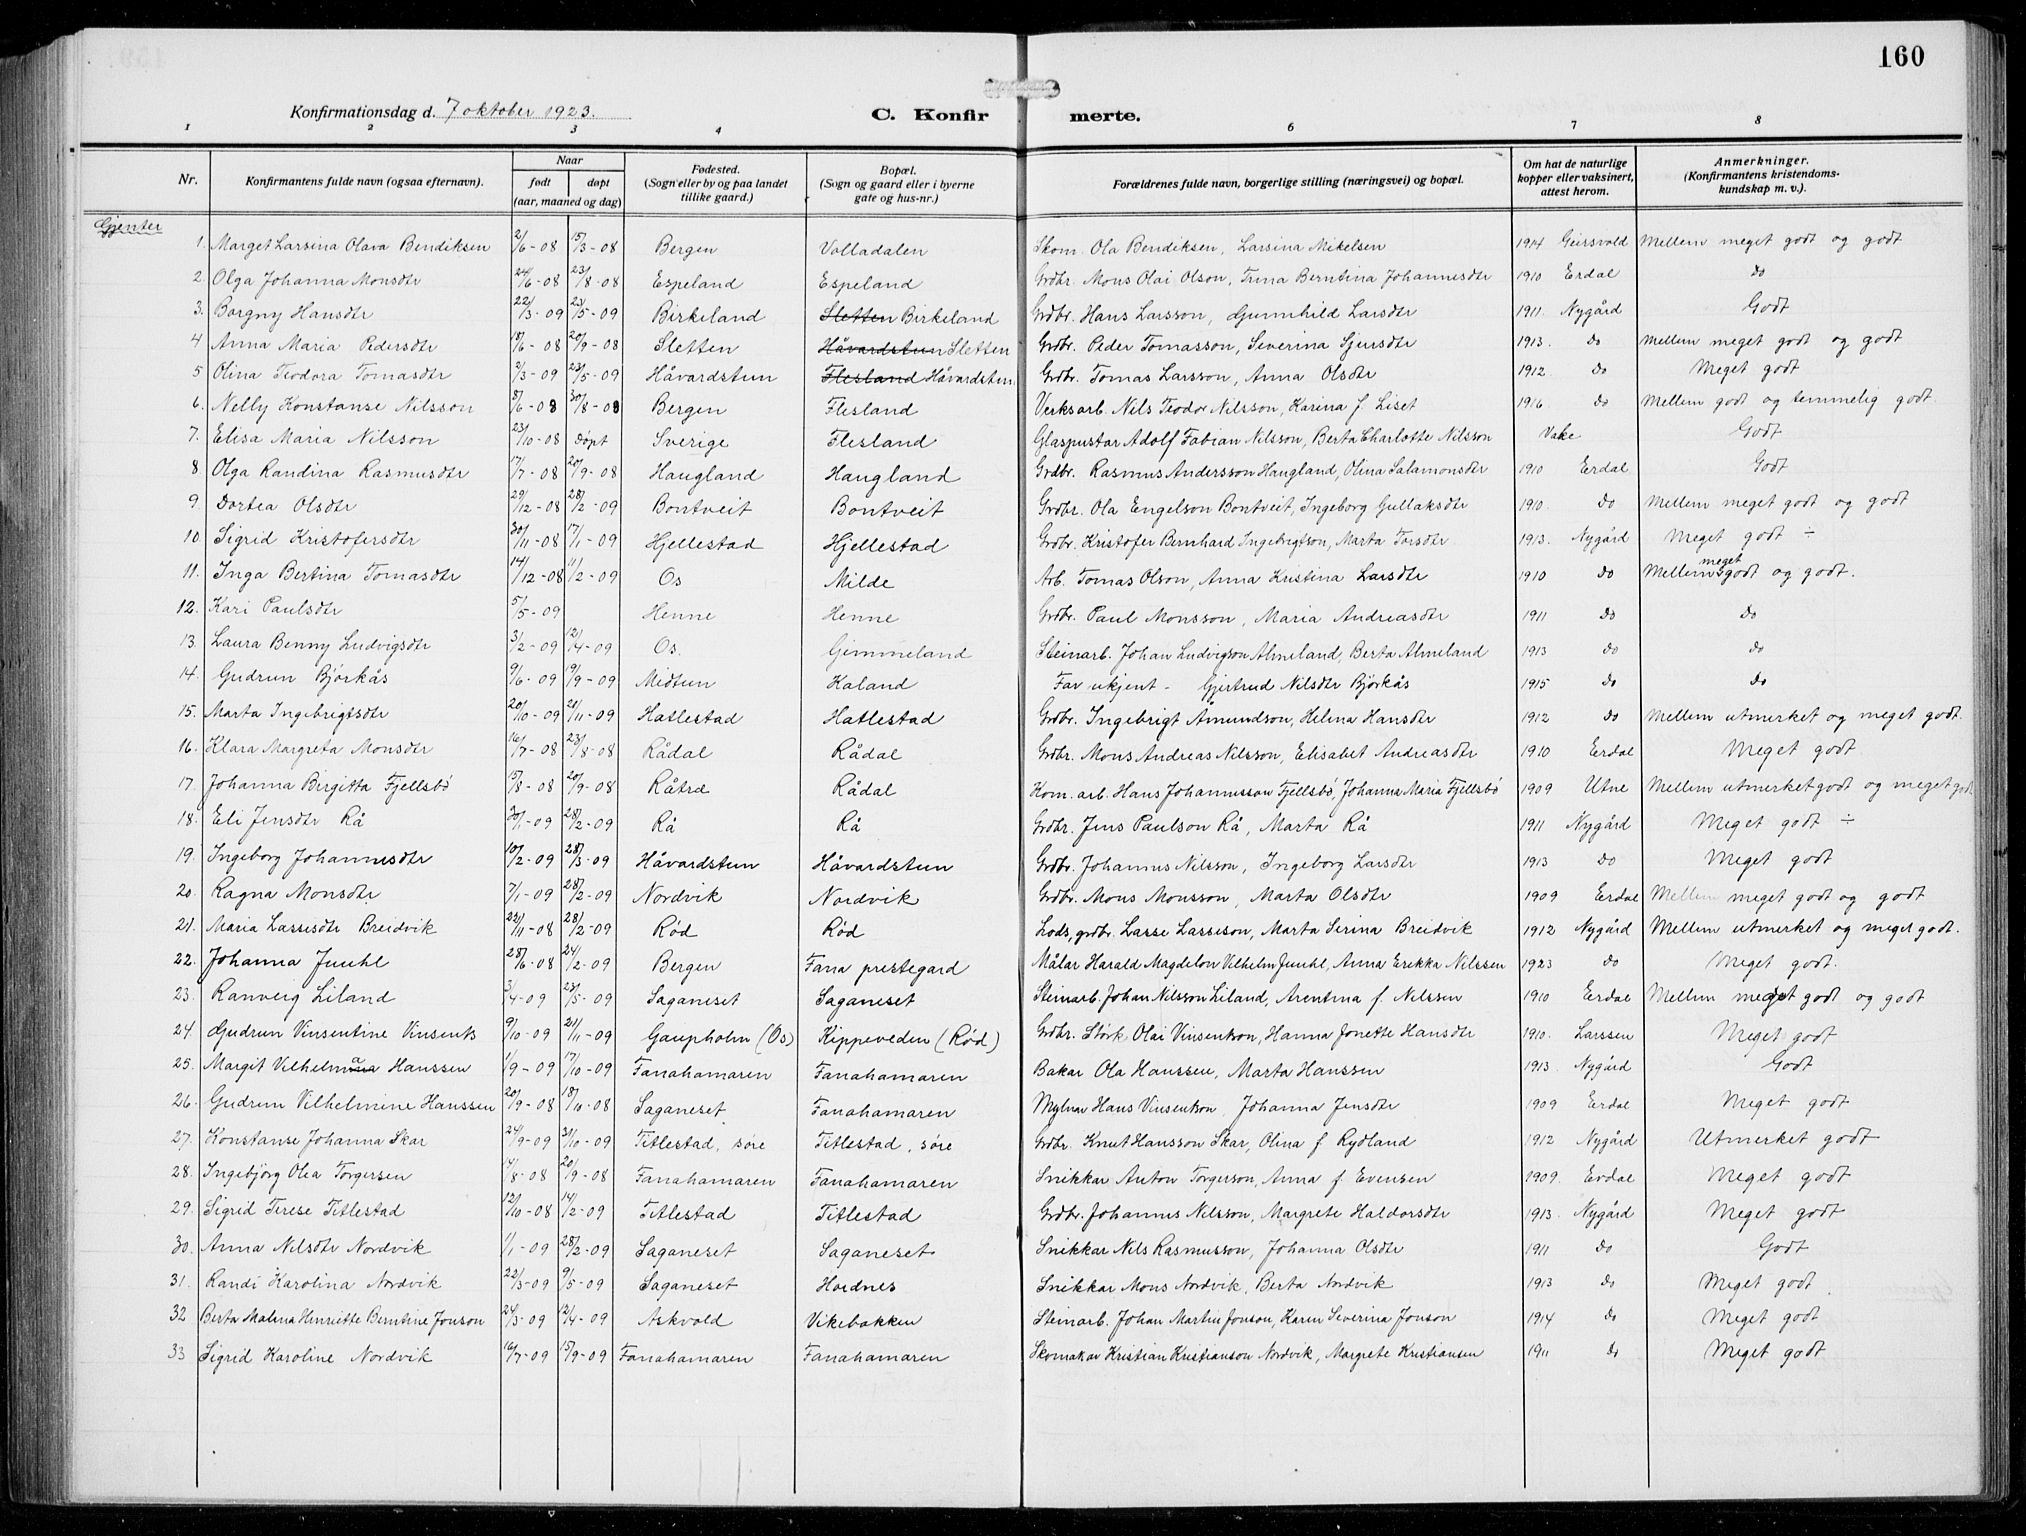 160
Konfirmationsdag d. 7 oktober 1923.
C. Konfirmerte.
1 2 3 4 6 7 8
Nr. Konfirmantens fulde navn (ogsaa efternavn). Naar født døpt (aar, maaned og dag) Fødested. (Sogn eller by og paa landet tillike gaard.) Bopæl. (Sogn og gaard eller i byerne gate og hus-nr.) Forældrenes fulde navn, borgerlige stilling (næringsvei) og bopæl. Om hat de naturlige kopper eller vaksinert, attest herom. Anmerkninger. (Konfirmantens kristendoms-kundskap m. v.).
Gjenter
1. Marget Larsina Olava Bendiksen 2/6-08 15/3-08 Bergen Volladalen Skom. Ola Bendiksen, Larsina Mikelsen 1914 Geirsvold Mellem meget godt og godt
2. Olga Johanna Monsdtr 24/6-08 23/8-08 Espeland Espeland Grdbr. Mons Olai Olson, Trina Berntina Johannesdtr 1910 Erdal do
3. Borgny Hansdtr 22/3-09 23/5-09 Birkeland Sletten Birkeland Grdbr. Hans Larsson, Gunnhild Larsdtr 1911 Nygård Godt
4 Anna Maria Pedersdtr 18/6-08 20/9-08 Sletten Håvardstun Sletten Grdbr. Peder Tomasson, Severina Sjursdtr 1913. do Mellem meget godt og godt
5 Olina Teodora Tomasdtr 2/3-09 23/5-09 Håvardstun Flesland Håvardstun Grdbr. Tomas Larsson, Anna Olsdtr 1912. do Meget godt
6. Nelly Konstanse Nilsson 8/6-08 30/8-08 Bergen Flesland Verksarb. Nils Teodor Nilsson, Karina f. Liset 1916 do Mellem godt og temmelig godt.
7. Elisa Maria Nilsson 23/10-08 døpt Sverige Flesland Glaspustar Adolf Fabian Nilsson, Berta Charlotte Nilsson Vake Godt
8 Olga Randina Rasmusdtr 17/7-08 20/9-08 Haugland Haugland Grdbr. Rasmus Andersson Haugland, Olina Salamonsdtr 1910 Erdal Godt
9 Dortea Olsdtr 29/12-08 28/2-09 Bontveit Bontveit Grdbr. Ola Engelson Bontveit, Ingeborg Gullaksdtr 1910. do Mellem meget godt og godt
10. Sigrid Kristofersdtr 30/11-08 17/1-09 Hjellestad Hjellestad Grdbr. Kristofer Bernhard Ingebrigtson, Marta Torsdtr 1913. Nygård Meget godt ÷
11. Inga Bertina Tomasdtr 14/12-08 11/2-09 Os Milde Arb. Tomas Olson, Anna Kristina Larsdtr 1910 do Mellem meget godt og godt.
12. Kari Paulsdtr 5/5-09 Henne Henne Grdbr. Paul Monsson, Maria Andreasdtr 1911 do do
13. Laura Benny Ludvigsdtr 3/2-09 12/4-09 Os. Gimmeland Steinarb. Johan Ludvigson Almeland, Berta Almeland 1913 do do
14. Gudrun Bjørkås 9/6-09 19/9-09 Midtun Kaland Far ukjent - Gjertrud Nilsdtr Bjørkås 1915 do do
15. Marta Ingebrigtsdtr 20/10-09 21/11-09 Hatlestad Hatlestad Grdbr. Ingebrigt Åmundson, Helena Hansdtr 1912 do Mellem utmerket og meget godt.
16. Klara Margreta Monsdtr 16/7-08 23/8-08 Rådal Rådal Grdbr. Mons Andreas Nilsson, Elisabet Andreasdtr 1910 Erdal Meget godt
17. Johanna Birgitta Fjellsbø 15/8-08 20/9-08 Råtræ Rådal Kom. arb. Hans Johannesson Fjellsbø, Johanna Maria Fjellsbø 1909 Utne Mellem utmerket godt og meget godt
18. Eli Jensdtr Rå 30/1-09 28/2-09 Rå Rå Grdbr. Jens Paulson Rå, Marta Rå 1911 Nygård Meget godt ÷
19. Ingeborg Johannesdtr 10/2-09 28/3-09 Håvardstun Håvardstun Grdbr. Johannes Nilsson, Ingeborg Larsdtr 1913 do Meget godt
20. Ragna Monsdtr 7/1-09 28/2-09 Nordvik Nordvik Grdbr. Mons Monsson, Marta Olsdtr 1909 Erdal Mellem meget godt og godt
21. Maria Lassesdtr Breidvik 22/11-08 28/2-09 Rød Rød Lods, grdbr. Lasse Lasseson, Marta Serina Breidvik 1912 Nygård Mellem utmerket og meget godt.
22. Johanna Juuhl 28/6-08 24/2-09 Bergen Fana prestegard Målar Harald Magdelon Vilhelm Juuhl, Anna Erekka Nilssen 1923 do Meget godt.
23. Ranveig Liland 3/4-09 23/5-09 Saganeset Saganeset Steinarb. Johan Nilsson Liland, Arentina f. Nilssen 1910 Erdal Mellem meget godt og godt
24. Gudrun Vinsentine Vinsents 9/10-09 21/11-09 Gaupholm (Os) Kippeveden (Rød) Grdbr. Størk Olai Vinsentson, Hanna Jonette Hansdtr 1910. Larssen Meget godt
25. Margit Vilhelmina Hanssen 1/9-09 17/10-09 Fanahamaren Fanahamaren Bakar Ola Hanssen, Marta Hanssen 1913. Nygård Godt
26. Gudrun Vilhelmine Hanssen 20/9-08 18/10-08 Saganeset Fanahamaren Mylnar Hans Vinsentson, Johanna Jensdtr 1909 Erdal Meget godt
27. Konstanse Johanna Skar 24/9-09 31/10-09 Titlestad, søre Titlestad, søre Grdbr. Knut Hansson Skar, Olina f Rydland 1912 Nygård Utmerket godt
28. Ingebjørg Olea Torgersen 14/8-08 20/9-08 Fanahamaren Fanahamaren Snikkar Anton Torgerson, Anna f Evensen 1909. Erdal Meget godt
29. Sigrid Terese Titlestad 12/10-08 14/2-09 Titlestad Titlestad Grdbr. Johannes Nilsson, Margrete Haldorsdtr 1913. Nygård Meget godt
30. Anna Nilsdtr Nordvik 1/1-09 28/2-09 Saganeset Saganeset Snikkar Nils Rasmusson, Johanna Olsdtr 1911 do Godt
31. Randi Karolina Nordvik 22/3-09 9/5-09 Saganeset Hordnes Snikkar Mons Nordvik, Berta Nordvik 1913 do Meget godt
32 Berta Malena Henriette Berntine Jonson 24/3-09 12/4-09 Askvold Vikebakken Steinarb. Johan Martin Jonson, Karen Severina Jonson 1914 do Meget godt
33 Sigrid Karoline Nordvik 16/7-09 15/9-09 Fanahamaren Fanahamaren Skomakar Kristian Kristianson Nordvik, Margrete Kristiansen 1911 do Meget godt